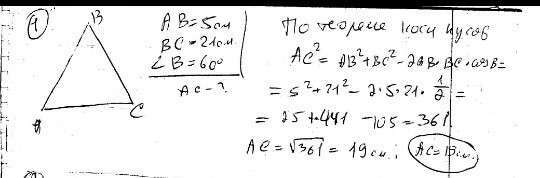 1
B
A
C
AB=5см
BC=21см
∠B=60°
AC-?
По теореме косинусов
AC²=AB²+BC²-2AB·BC·cosB=
=5²+21²-2·5·21·1/2=
=25+441-105=361
AC=√361=19см; AC=19см.